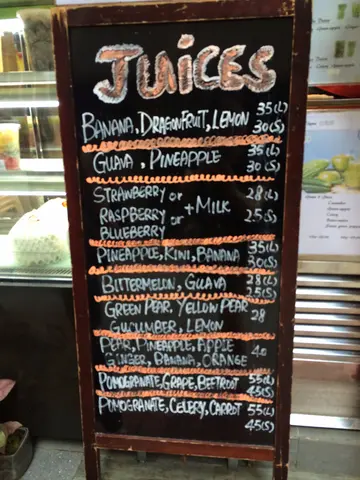 JUICES
BANANA, DRAGONFRUIT, LEMON 35(L)
30(S)
GUAVA, PINEAPPLE 35(L)
30(S)
STRAWBERRY or 28(L)
RASPBERRY or +MILK 25(S)
BLUEBERRY
PINEAPPLE, KINI, BANANA 35(L)
30(S)
BITTERMELON, GUAVA 28(L)
25(S)
GREEN PEAR, YELLOW PEAR 28
CUCUMBER, LEMON
PEAR, PINEAPPLE, APPLE 40
GINGER, BANANA, ORANGE
POMOGRANATE, GRAPE, BEETROOT 55(L)
45(S)
POMOGRANATE, CELERY, CARROT 55(L)
45(S)